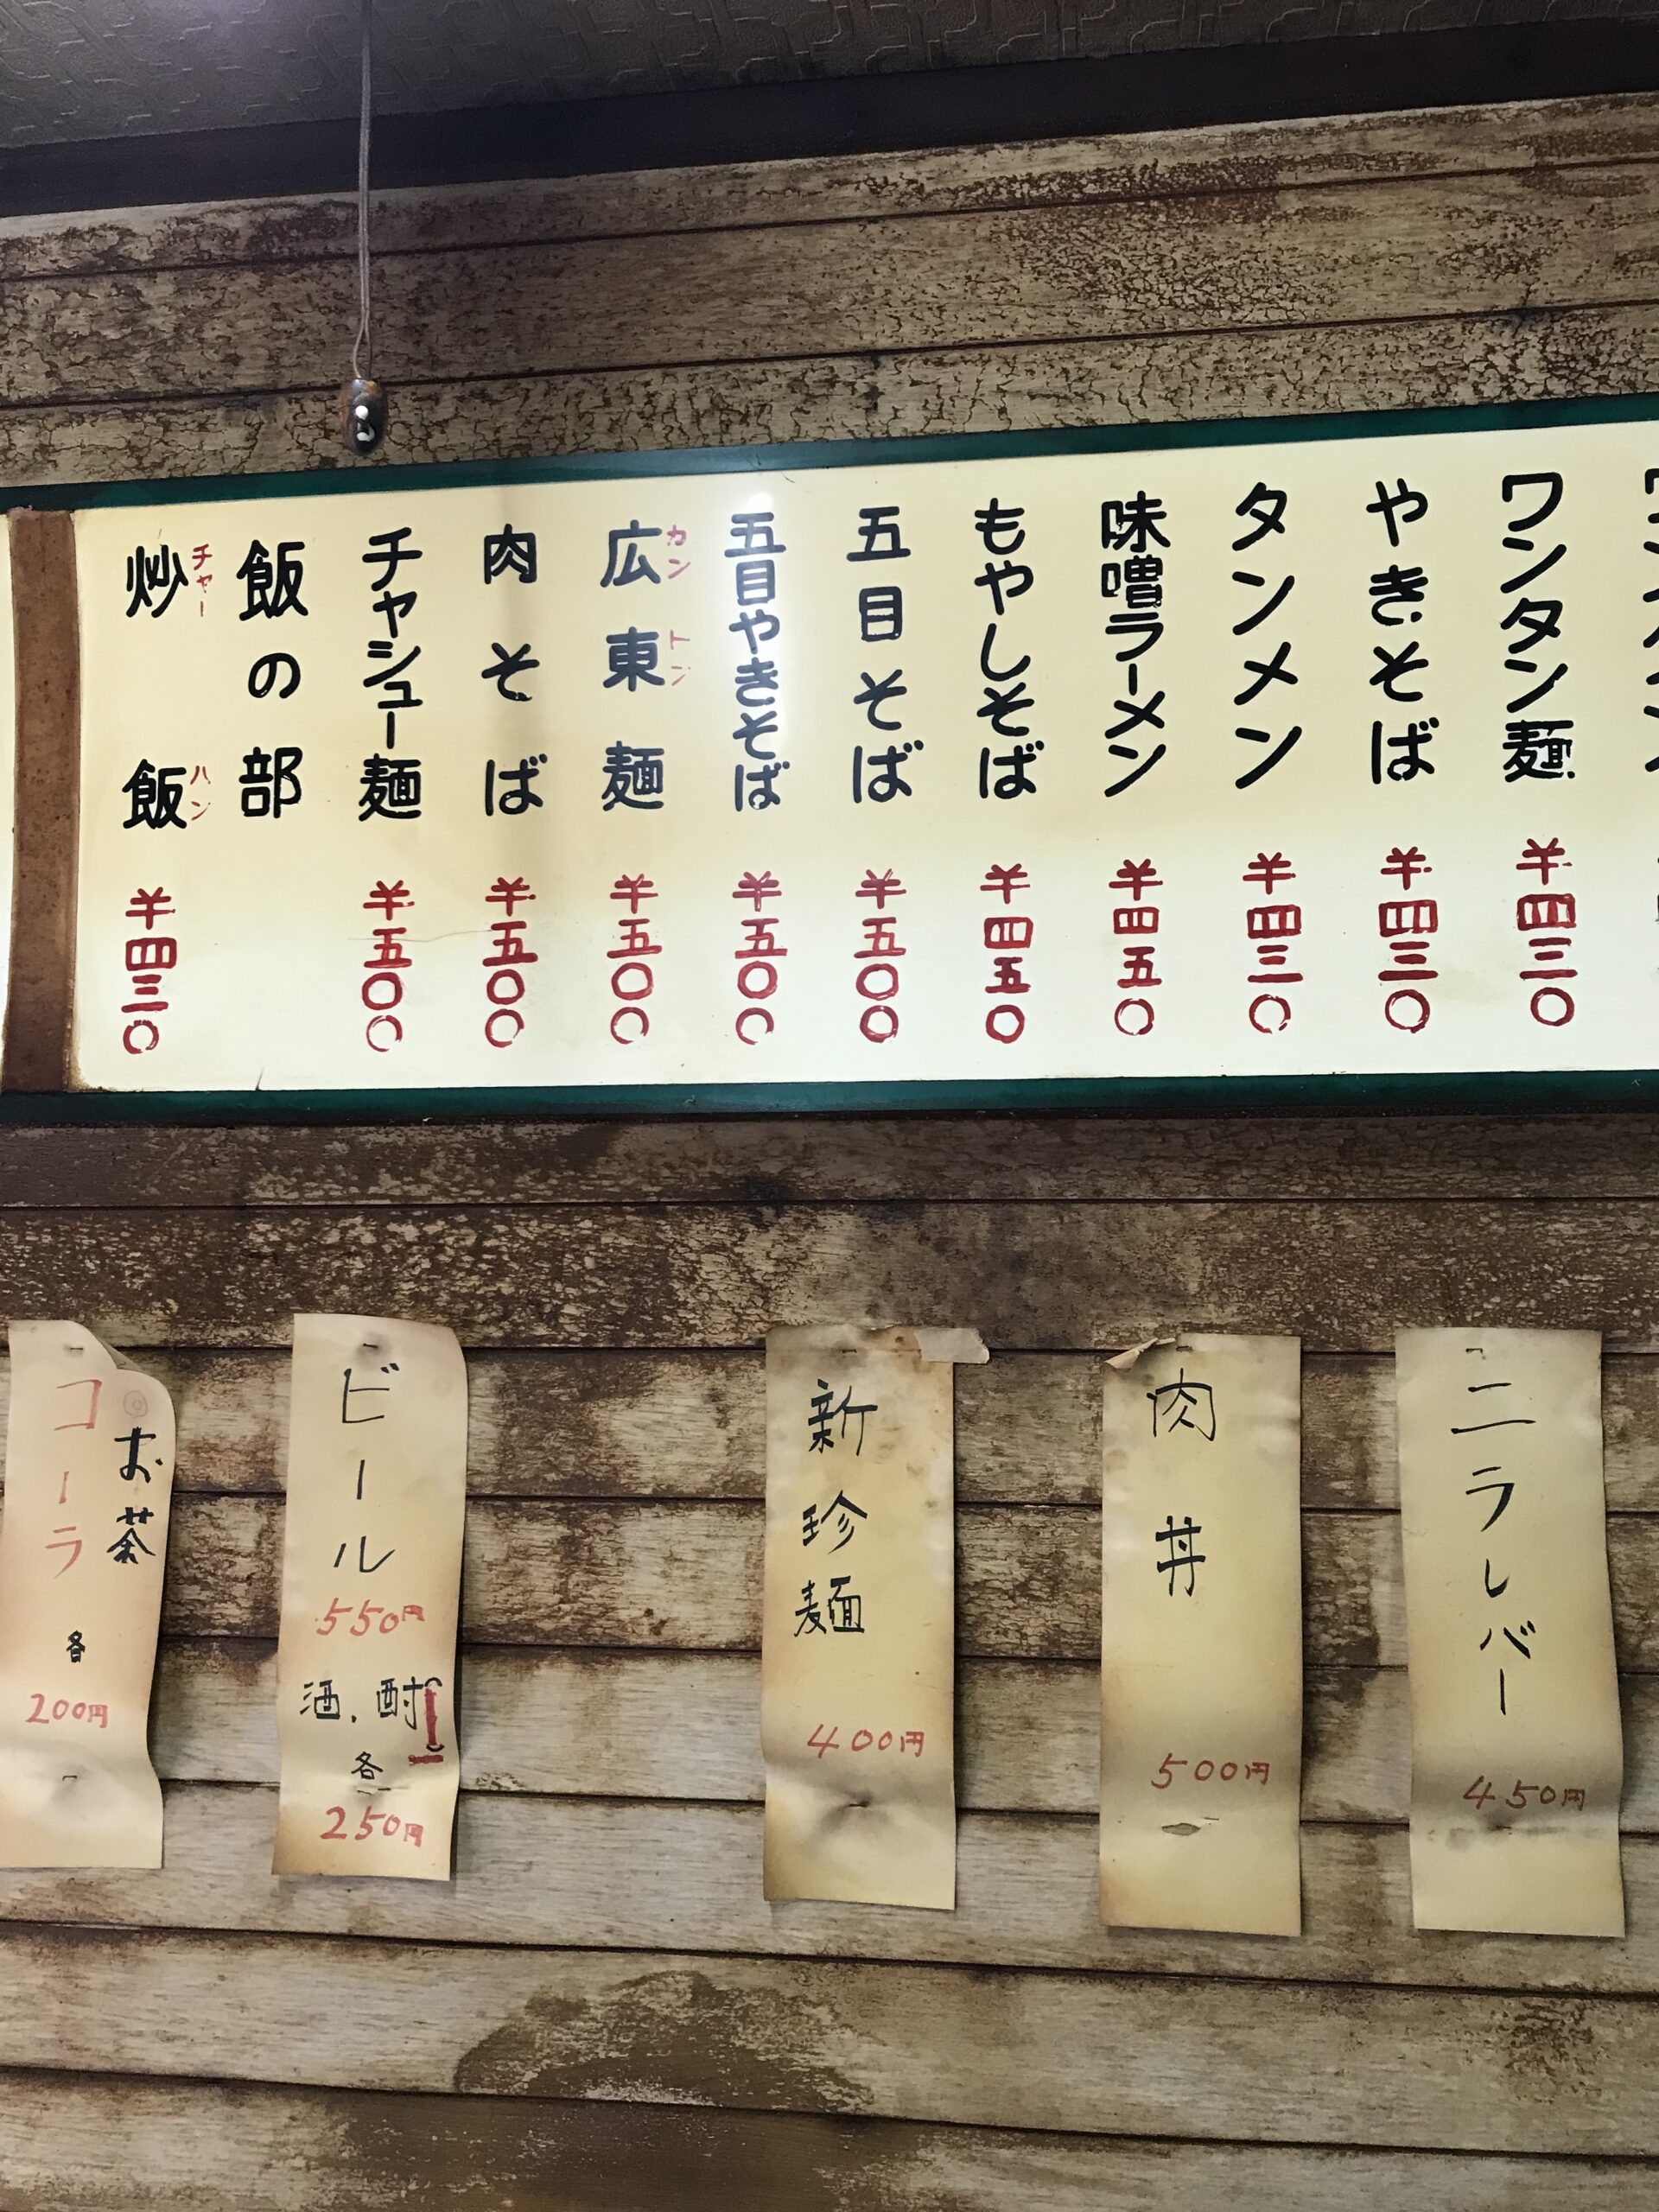 ワンタン麺 ¥四三〇
やきそば ¥四三〇
タンメン ¥四三〇
味噌ラーメン ¥四五〇
もやしそば ¥四五〇
五目そば ¥五〇〇
五目やきそば ¥五〇〇
広東麺 ¥五〇〇
カントン
肉そば ¥五〇〇
チャシュー麺 ¥五〇〇
飯の部
炒飯 ¥四三〇
チャーハン
ニラレバー
450円
肉丼
500円
新珍麺
400円
ビール
550円
酒.酎
各
250円
お茶
コーラ
各
200円